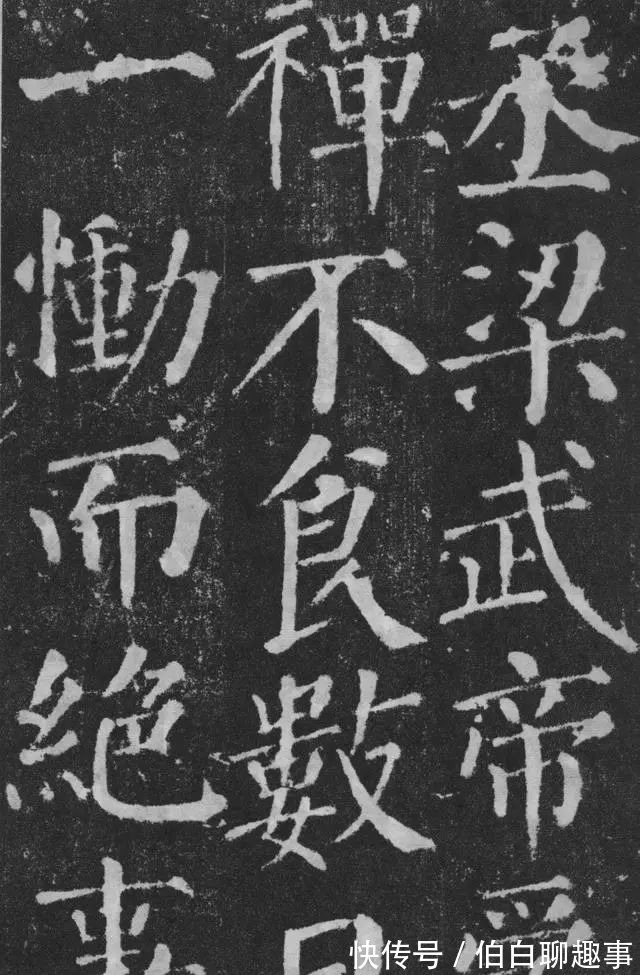 丞梁武帝
禪不食數
一慟而絕事
快传号/伯白聊趣事